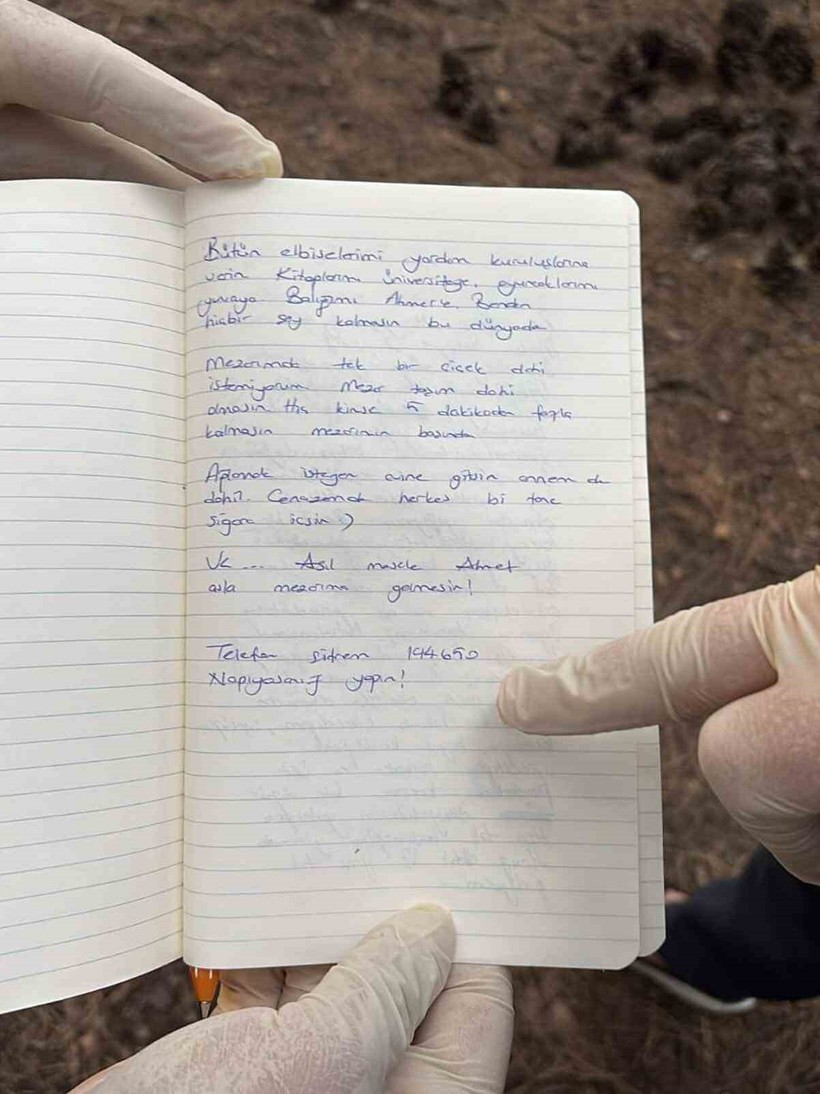 Bütün elbiselerimi yardım kuruluşlarına
verin Kitaplarımı üniversiteye, oyuncaklarımı
yuvaya Balığımı Ahmet'e. Benden
hiçbir şey kalmasın bu dünyada
Mezarımda tek bir çiçek dahi
istemiyorum Mezar taşım dahi
olmasın kimse 5 dakikadan fazla
kalmasın mezarımın başında
Ağlamak isteyen evine gitsin annem de
dahil. Cenazemde herkes bi tane
sigara içsin :)
Ve... Asıl mesele Ahmet
asla mezarıma gelmesin!
Telefon şifrem 194650
Napıyosanız yapın!